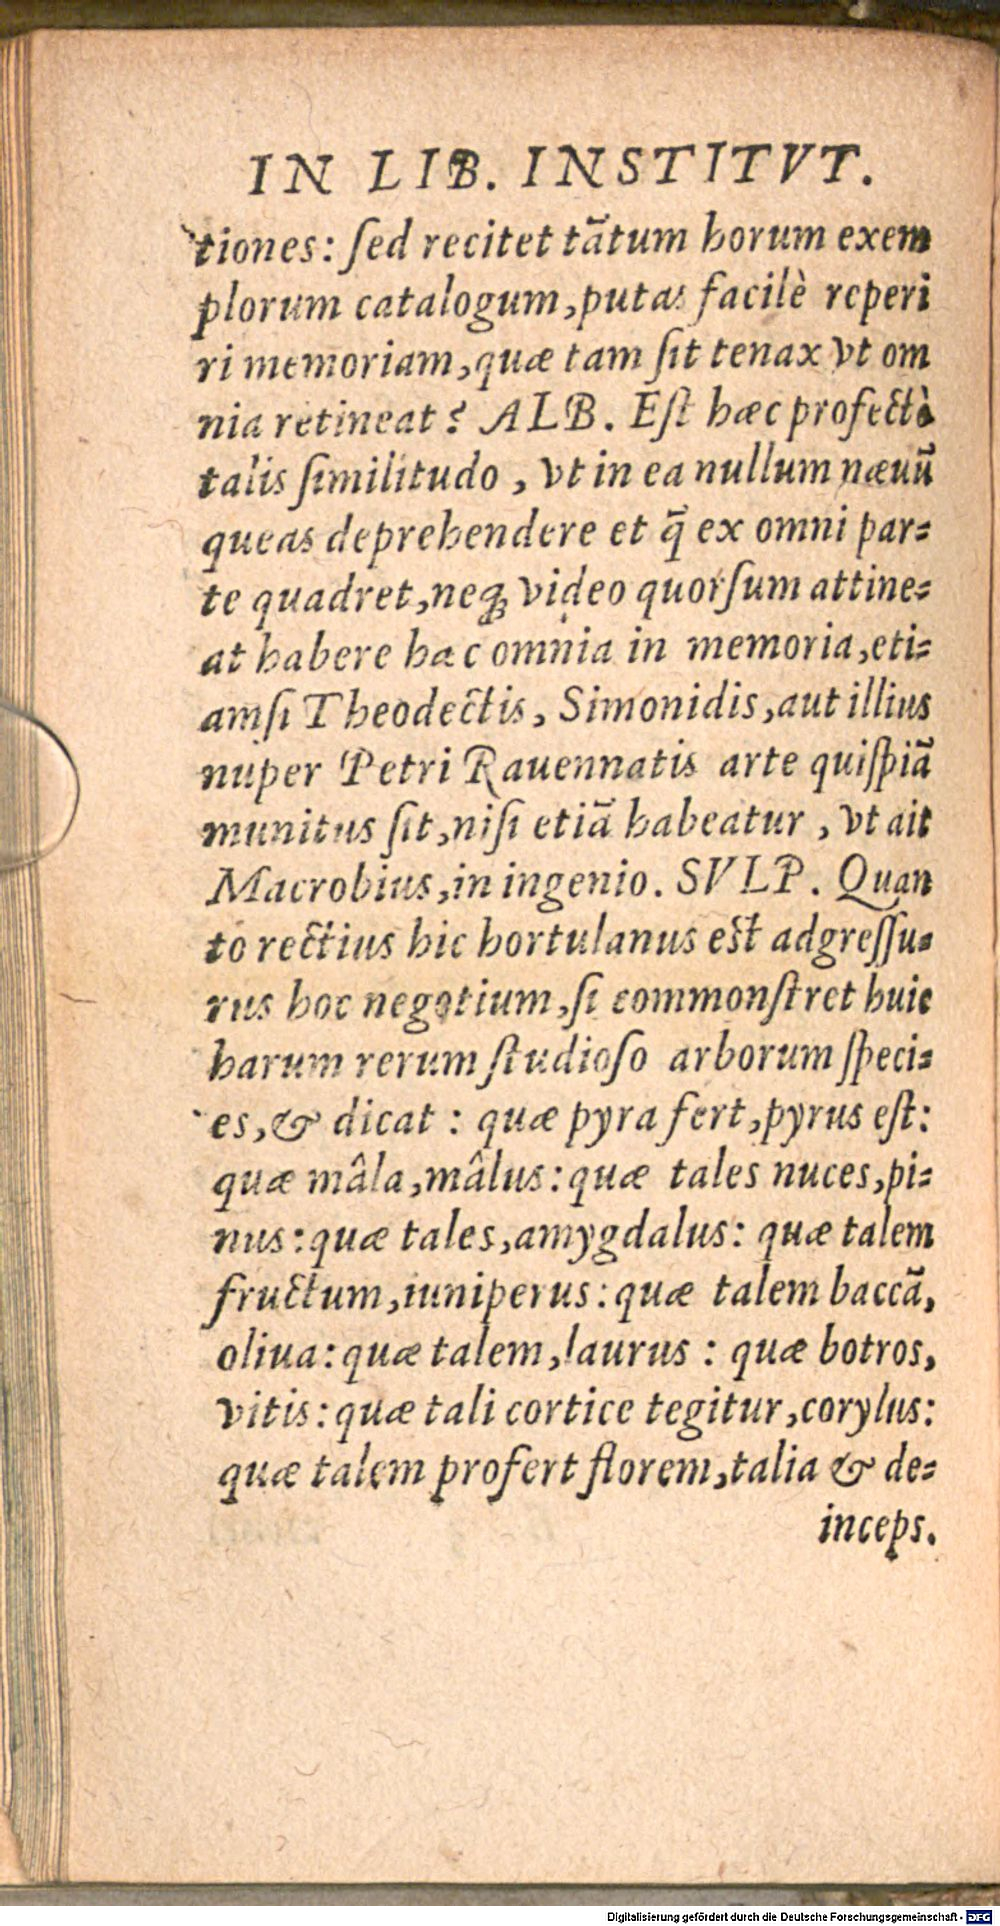 IN LIB. INSTITVT.
tiones: ſed recitet tātum horum exem
plorum catalogum, putas facilè reperi
ri memoriam, quæ tam ſit tenax vt om
nia retineat? ALB. Eſt hæc profectò
talis ſimilitudo, vt in ea nullum næuū
queas deprehendere et q̄ ex omni par⸗
te quadret, neqꝫ video quorſum attine⸗
at habere hæc omnia in memoria, eti⸗
amſi Theodectis, Simonidis, aut illius
nuper Petri Rauennatis arte quiſpiā
munitus ſit, niſi etiā habeatur, vt ait
Macrobius, in ingenio. SVLP. Quan
to rectius hic hortulanus eſt adgreſſu⸗
rus hoc negotium, ſi commonſtret huic
harum rerum ſtudioſo arborum ſpeci⸗
es, & dicat: quæ pyra fert, pyrus eſt:
quæ mâla, mâlus: quæ tales nuces, pi⸗
nus: quæ tales, amygdalus: quæ talem
fructum, iuniperus: quæ talem baccā,
oliua: quæ talem, laurus: quæ botros,
vitis: quæ tali cortice tegitur, corylus:
quæ talem profert florem, talia & de⸗
inceps.
Digitalisierung gefördert durch die Deutsche Forschungsgemeinschaft - DFG